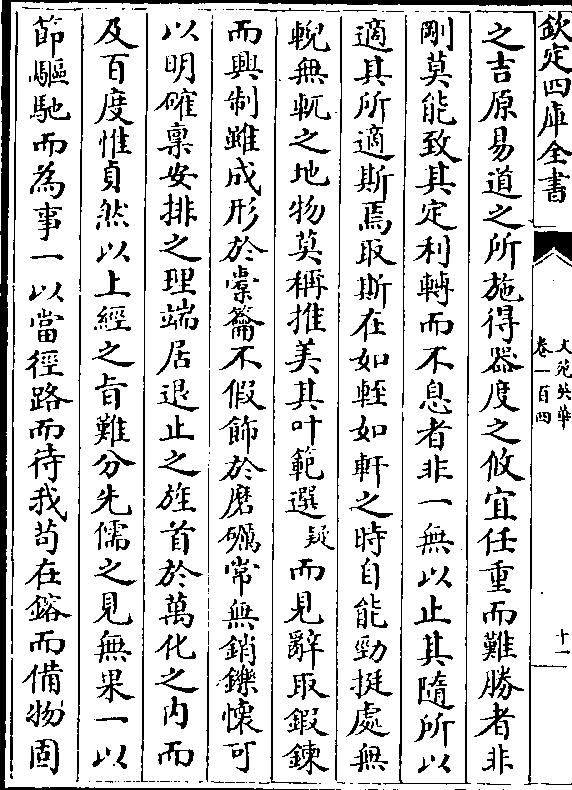 欽定四庫全書
文苑英華
卷一百四
十一
之吉原易道之所施得器度之攸宜任重而難勝者非
剛莫能致其定利轉而不息者非一無以止其隨所以
適其所適斯焉取斯在如輊如軒之時自能勁挺處無
輗無軏之地物莫稱推美其叶範選疑而見辭取鍜鍊
而興制雖成形於橐籥不假飾於磨礪常無銷鑠懐可
以明確禀安排之理端居退止之旌首於萬化之内而
及百度惟貞然以上經之㫖難分先儒之見無果一以
節驅馳而為事一以當徑路而待我苟在鎔而備物固